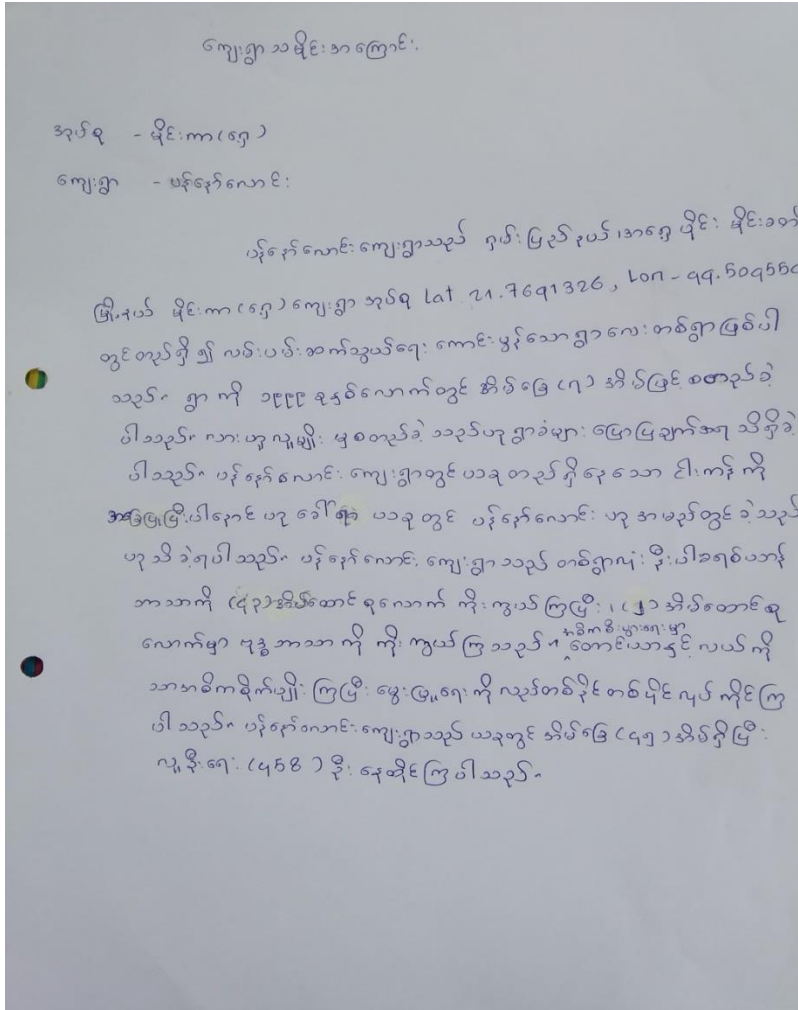 ကျေးရွာသမိုင်းအကြောင်း
အုပ်စု - မိုင်းကာ(ရှေ့)
ကျေးရွာ - ပန်နော်လောင်း
ပန်နော်လောင်းကျေးရွာသည် ရှမ်းပြည်နယ်၊ အရှေ့ပိုင်း မိုင်းခတ်
မြို့နယ် မိုင်းကာ(ရှေ့)ကျေးရွာ အုပ်စု Lat 21.7691326, Lon - 99.509550
တွင်တည်ရှိ၍ လမ်းပမ်းဆက်သွယ်ရေး ကောင်းမွန်သောရွာလေး တစ်ရွာဖြစ်ပါ
သည်။ ရွာကို ၁၉၉၉ ခုနှစ်လောက်တွင် အိမ်ခြေ (၇) အိမ်ဖြင့် စတည်ခဲ့
ပါသည်။ လားဟူလူမျိုး မှစတည်ခဲ့ သည်ဟု ရွာခံများ ပြောပြချက်အရ သိရှိခဲ့
ပါသည်။ ပန်နော်လောင်း ကျေးရွာတွင်ယခုတည်ရှိနေသော ငါးကန်ကို
အခြေပြုပြီး ပါနောင် ဟုခေါ်ရာ ယခုတွင် ပန်နော်လောင်း ဟုအမည်တွင်ခဲ့သည်
ဟုသိခဲ့ရပါသည်။ ပန်နော်လောင်း ကျေးရွာသည် တစ်ရွာလုံးနီးပါးခရစ်ယာန်
ဘာသာကို (၄၃)အိမ်ထောင်စုလောက် ကိုးကွယ်ကြပြီး၊ (၂) အိမ်ထောင်စု
လောက်မှာ ဗုဒ္ဓဘာသာကို ကိုးကွယ်ကြသည်။ အဓိကစီးပွားရေးမှာ တောင်ယာနှင့်လယ်ကို
သာအဓိကစိုက်ပျိုးကြပြီး မွေးမြူရေးကိုလည်းတစ်နိုင်တစ်ပိုင်လုပ်ကိုင်ကြ
ပါသည်။ ပန်နော်လောင်းကျေးရွာသည် ယခုတွင် အိမ်ခြေ (၄၅) အိမ်ရှိပြီး
လူဦးရေ (၄58) ဦး နေထိုင်ကြပါသည်။